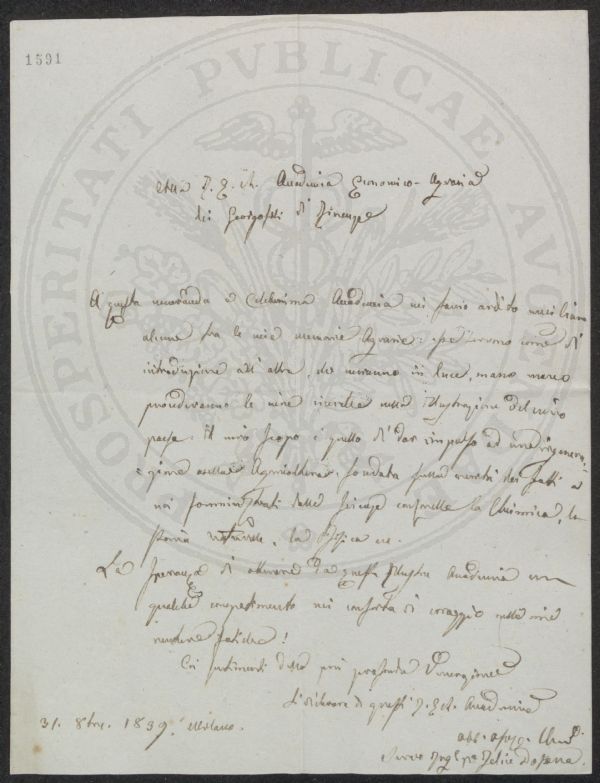 1591
PROSPERITATI PVBLICAE AVGENDAE
Alla I. E. R. Accademia Economico-Agraria
dei Georgofili di Firenze
A questa veneranda e Celeberrima Accademia mi faccio ardito
alcune fra le mie memorie Agrarie: esse servono come di
introduzione all'altre, che verranno in luce, mano mano
procederanno le mie ricerche nella illustrazione del mio
paese. Il mio scopo è quello di dar impulso ad una rigenera-
zione nella Agricoltura, fondata sulla verità dei fatti a
noi somministrati dalle scienze consorelle la Chimica, la
Storia naturale, la Fisica ec.
La speranza di ottenere da questa Illustre Accademia un
qualche compatimento mi conforta di coraggio nelle mie
fatiche!
Coi sentimenti della più profonda Venerazione
Si dichiara di questa I. E. R. Accademia
31. 8bre. 1839. Milano.
Servo Felice Dossena